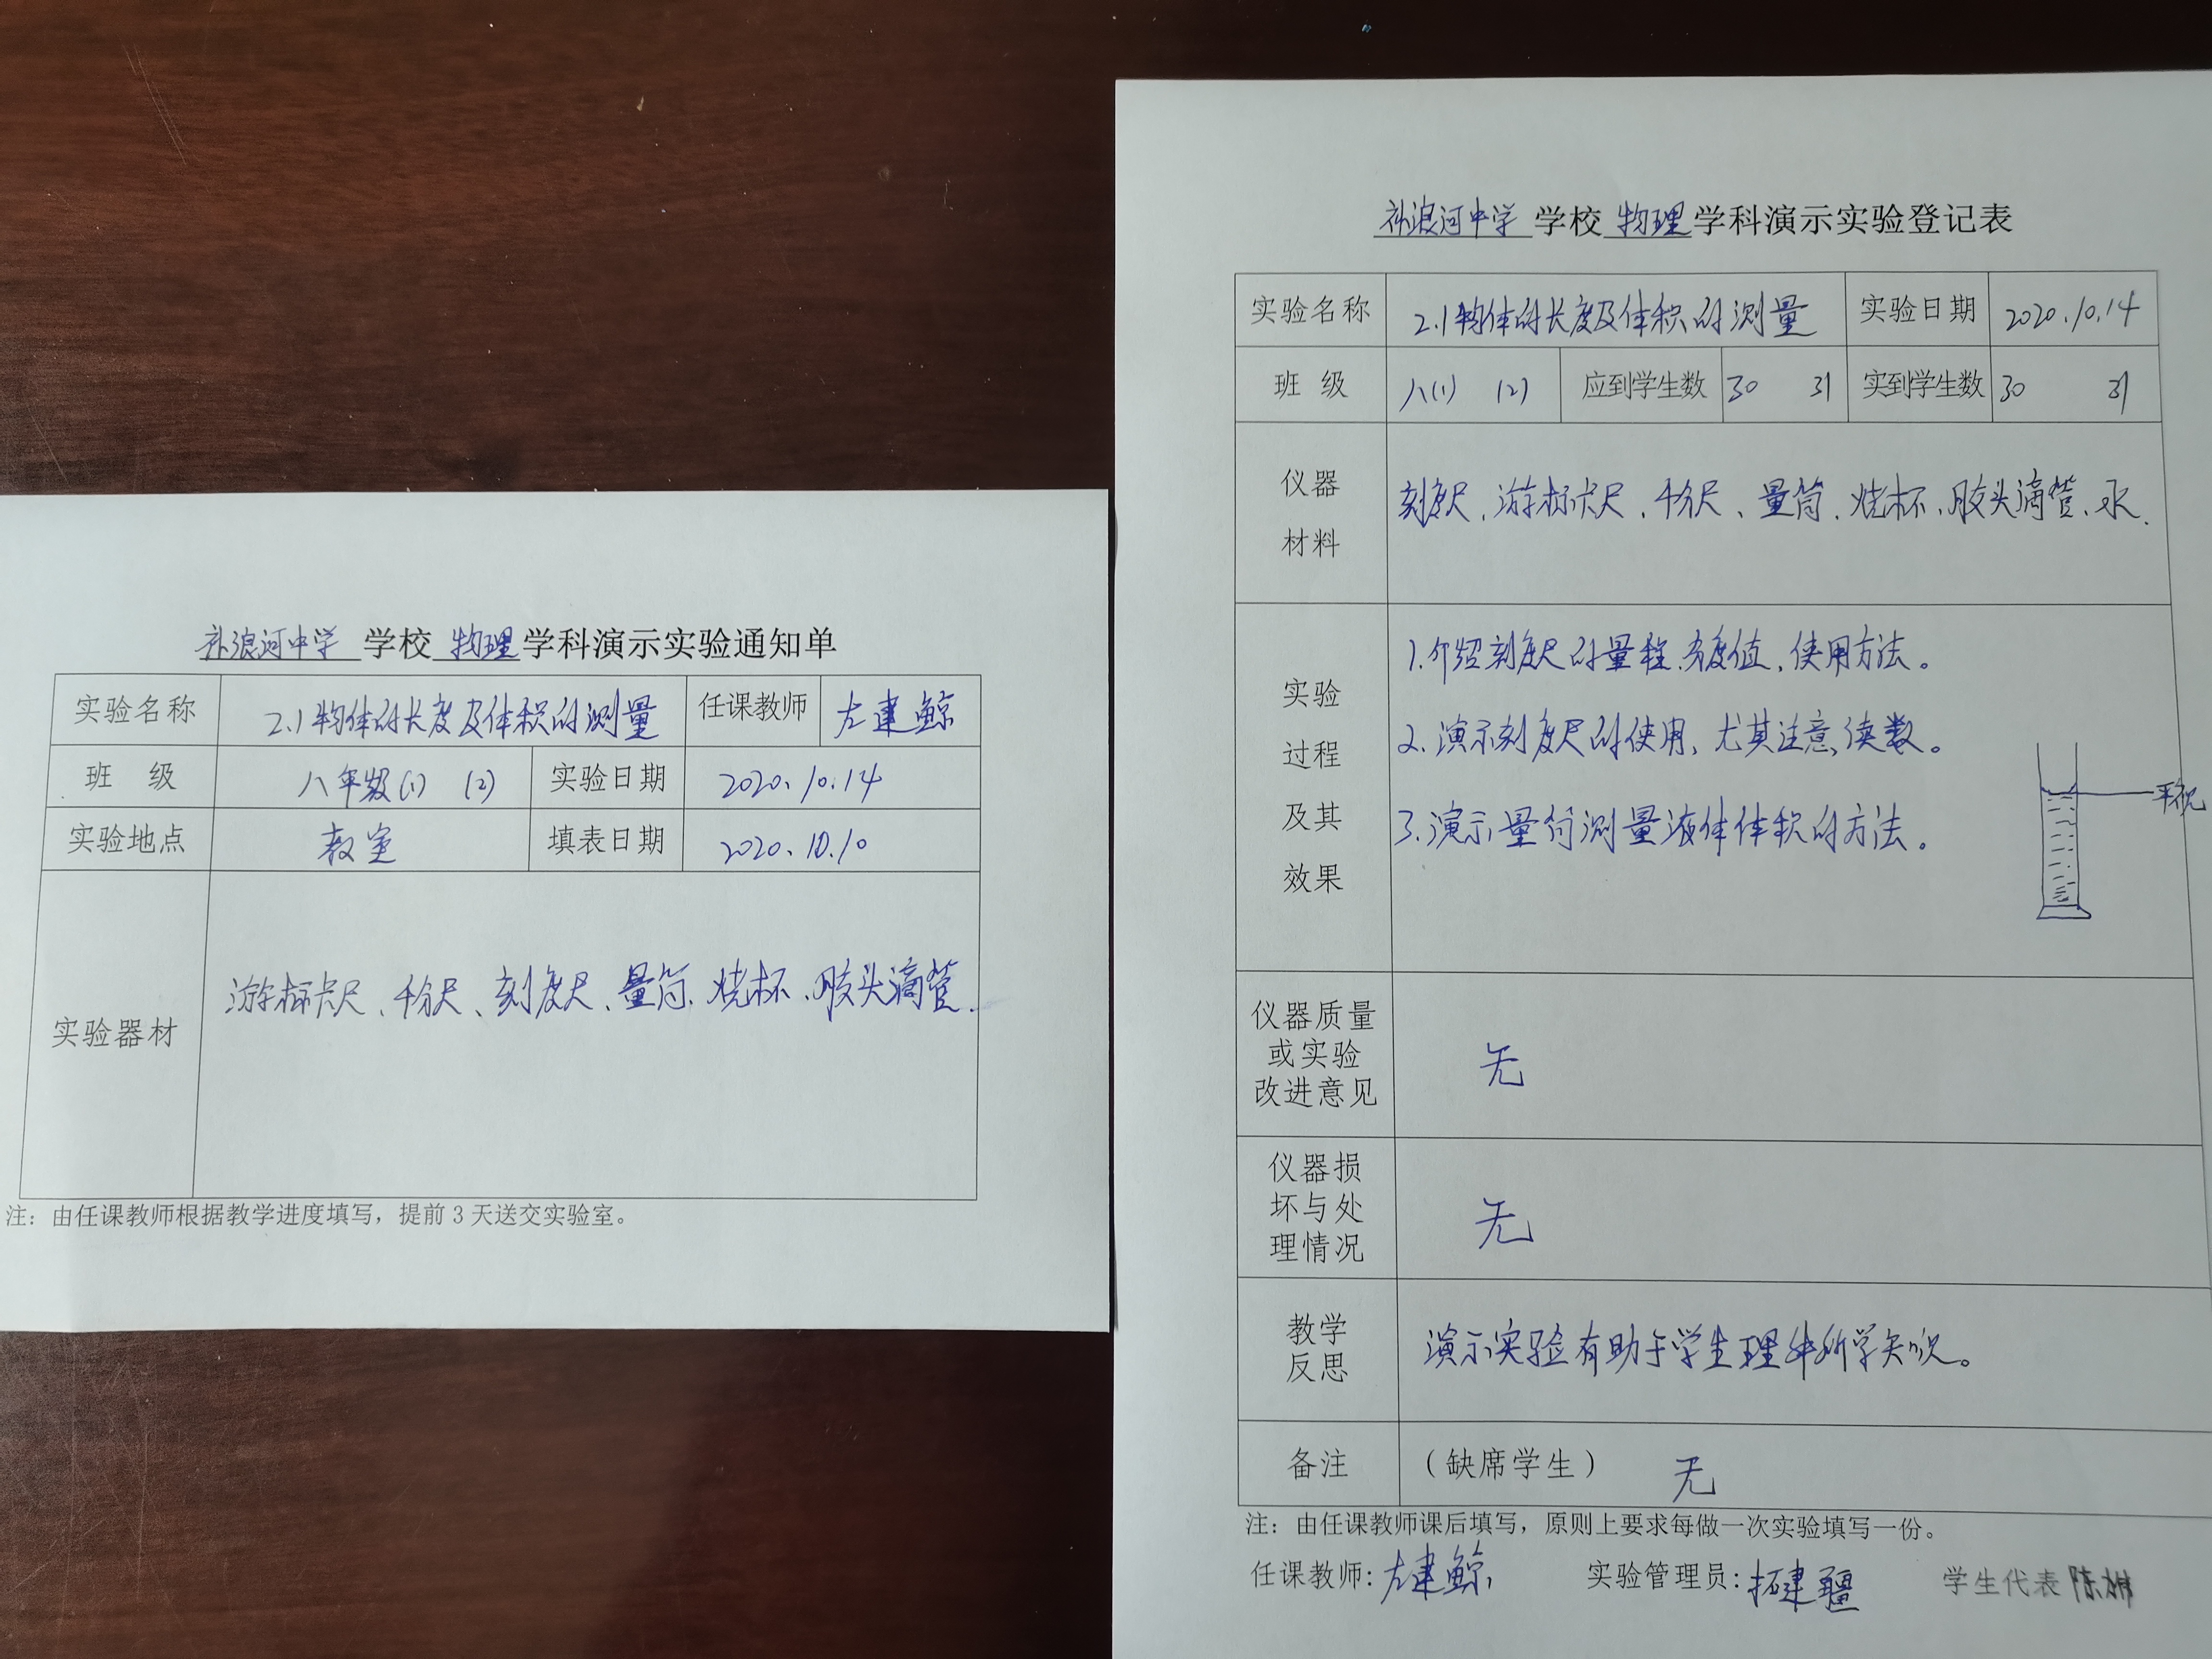 补浪河中学 学校 物理 学科演示实验通知单
实验名称 2.1物体的长度及体积的测量 任课教师 左建鲸
班 级 八年级(1) (2) 实验日期 2020.10.14
实验地点 教室 填表日期 2020.10.10
实验器材 游标卡尺、千分尺、刻度尺、量筒、烧杯、胶头滴管.
注：由任课教师根据教学进度填写，提前3天送交实验室。
补浪河中学 学校 物理 学科演示实验登记表
实验名称 2.1物体的长度及体积的测量 实验日期 2020.10.14
班 级 八(1) (2) 应到学生数 30 31 实到学生数 30 31
仪器
材料
刻度尺、游标卡尺、千分尺、量筒、烧杯、胶头滴管、水.
实验
过程
及其
效果
1.介绍刻度尺的量程、分度值、使用方法。
2.演示刻度尺的使用，尤其注意读数。
3.演示量筒测量液体体积的方法。
平视
仪器质量
或实验
改进意见
无
仪器损
坏与处
理情况
无
教学
反思
演示实验有助于学生理解所学知识。
备注 （缺席学生） 无
注：由任课教师课后填写，原则上要求每做一次实验填写一份。
任课教师：左建鲸 实验管理员：拓建疆 学生代表 陈